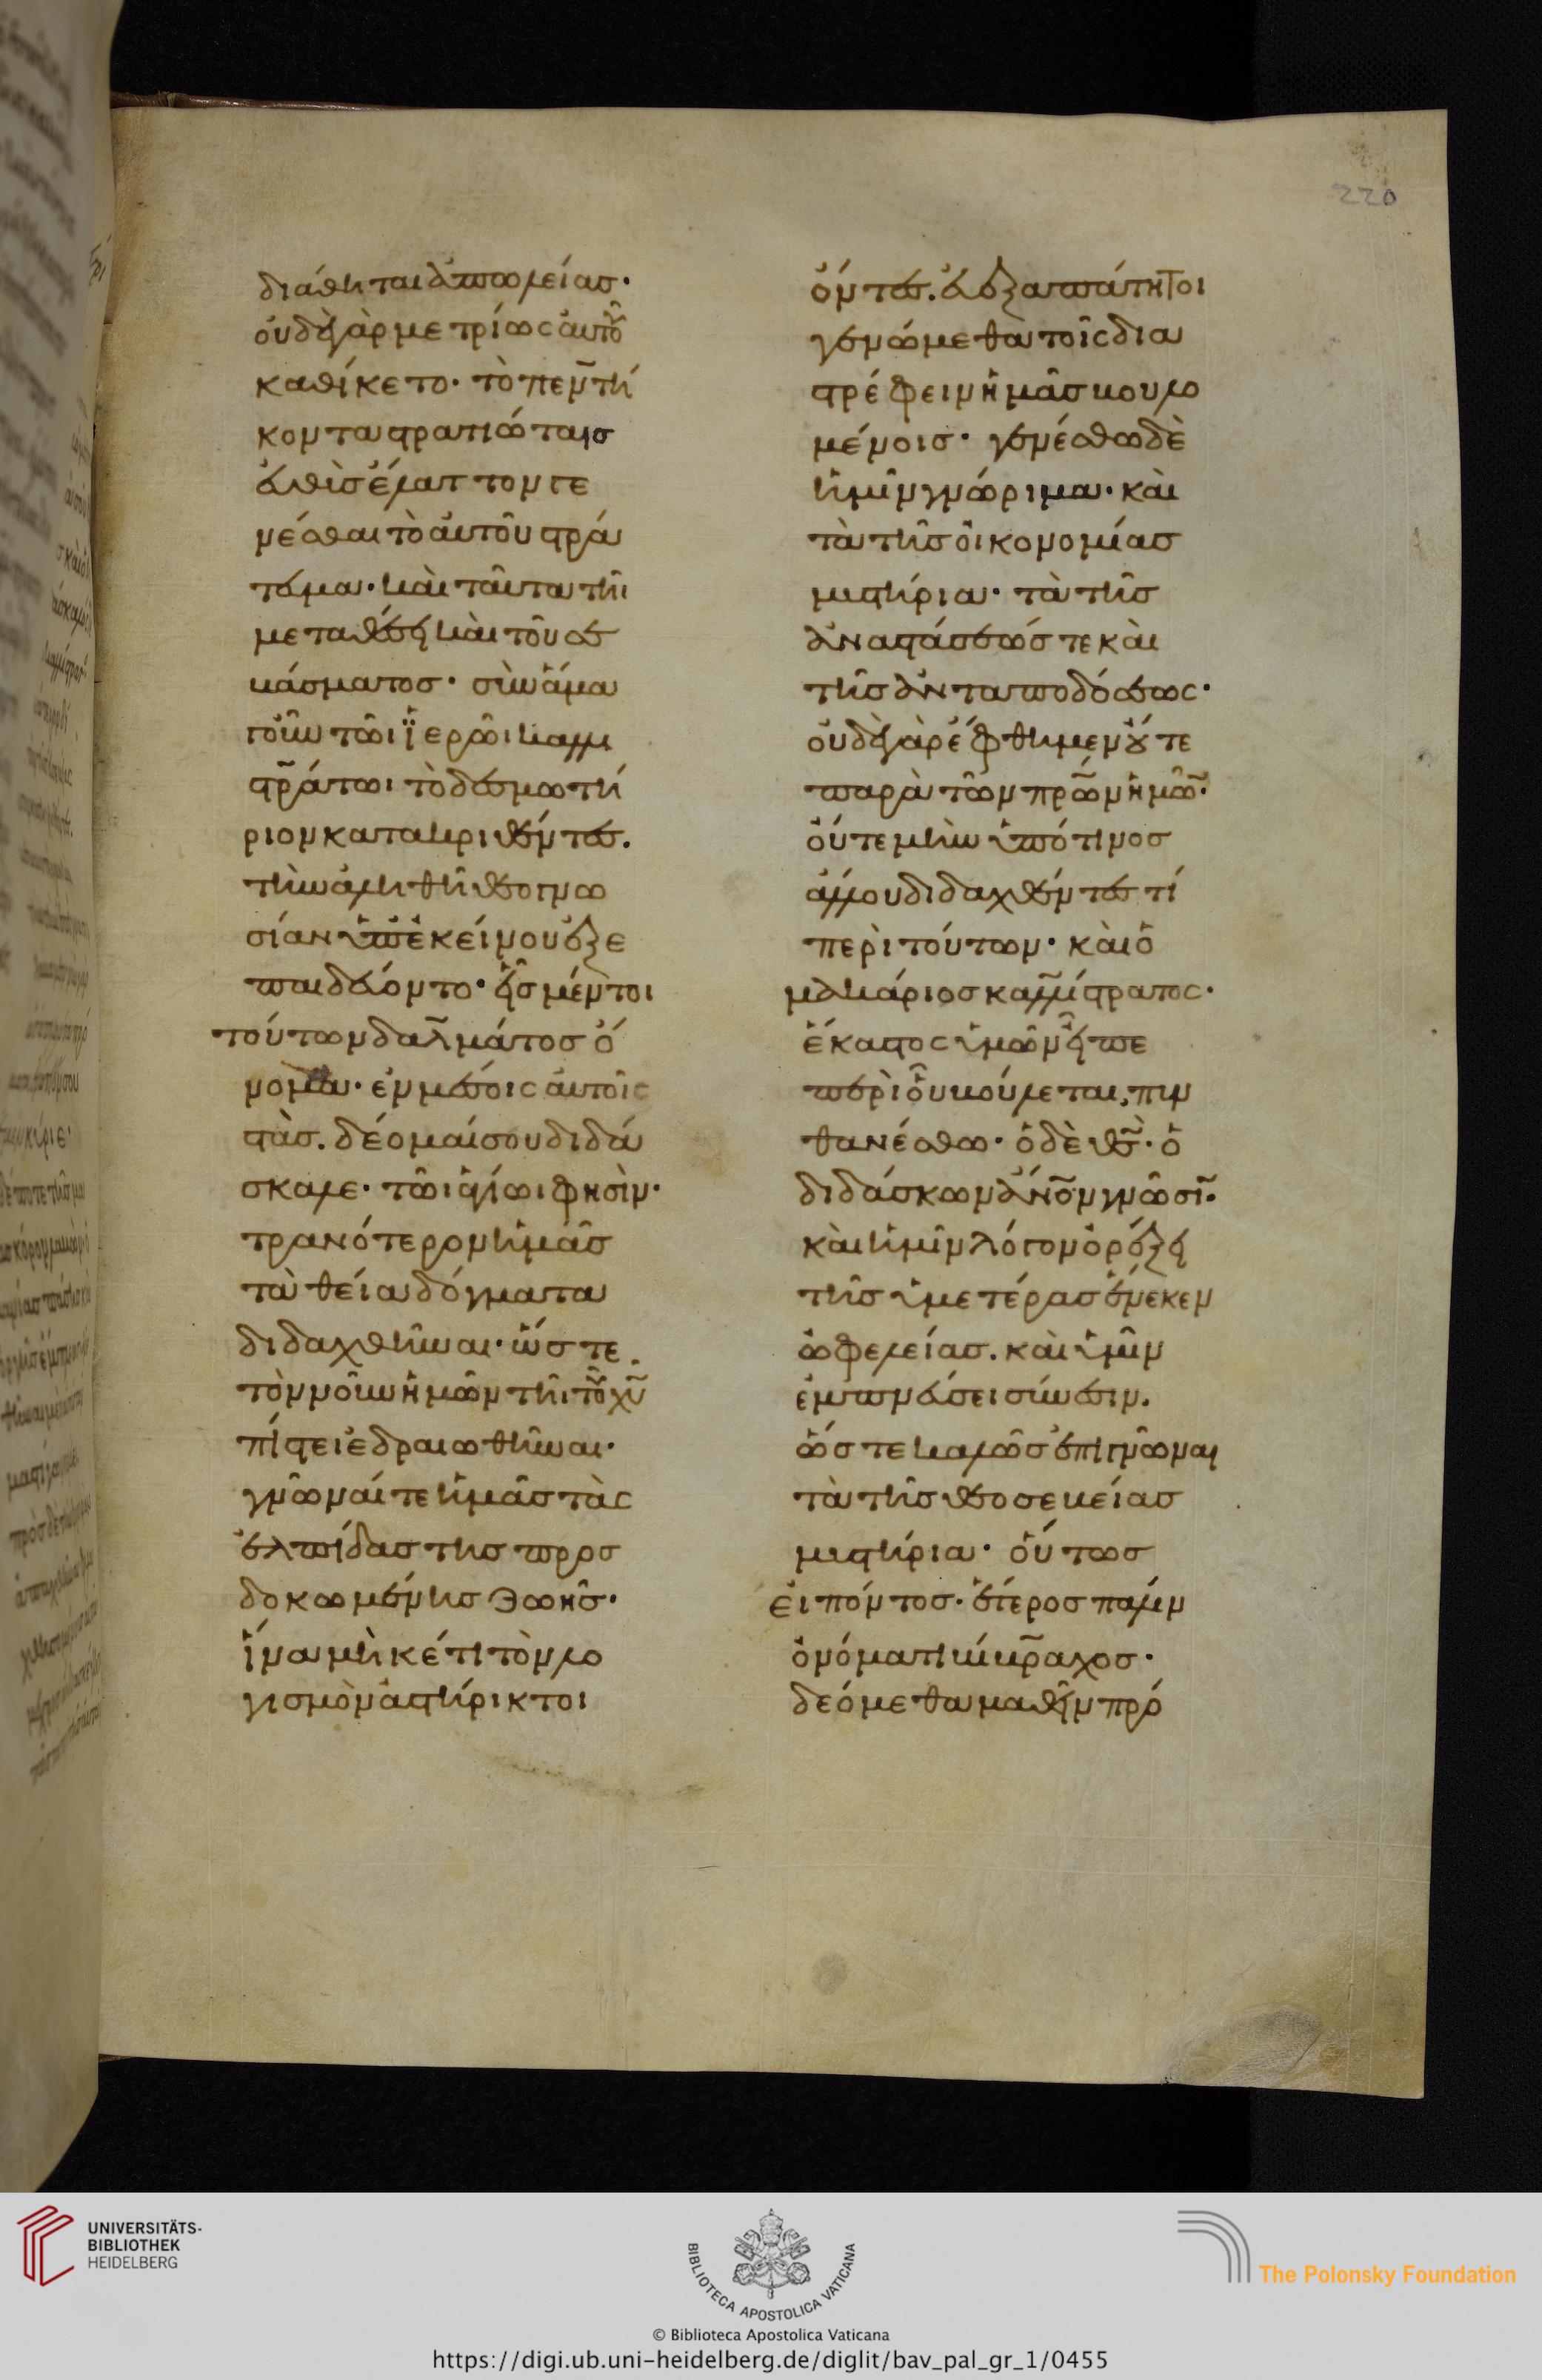 220
διάθηται ἀπωλείας·
οὐδὲ γὰρ μετρίως αὐτοῦ
καθίκετο· τὸ πεντή
κοντα στρατιώταις
εὐθὺς ἔλαττον γε
νέσθαι τὸ αὐτοῦ στρά
τευμα· καὶ ταῦτα τῆι
μεταθέσει καὶ τοῦ σε
βάσματος· σὺν ἅμα
γοῦν τῶι ἱερῶι καλλι
στράτωι τὸ δεσμωτή
ριον κατακριθέντες.
τὴν ἀληθῆ θεογνω
σίαν ὑπ' ἐκείνου ἐξε
παιδεύοντο· εἷς μέντοι
τούτων δαλμάτος ὄ
νομα· ἐν μέσοις αὐτοῖς
στὰς. δέομαί σου διδά
σκαλε· τῶι ἁγίωι φησὶν·
τρανότερον ἡμᾶς
τὰ θεία δόγματα
διδαχθῆναι· ὥστε
τὸν νοῦν ἡμῶν τῆι τοῦ χυ̅
πίστει ἑδραιωθῆναι·
γνῶναί τε ἡμᾶς τὰς
ἐλπίδας τῆς προσ
δοκωμένης ζωῆς·
ἵνα μὴκέτι τὸν λο
γισμὸν ἀστήρικτοι
ὄντες. εὐεξαπάτητοι
γενώμεθα τοῖς δια
στρέφειν ἡμᾶς βουλο
μένοις· γενέσθω δὲ
ἡμῖν γνώριμα· καὶ
τὰ τῆς οἰκονομίας
μυστήρια· τὰ τῆς
ἀναστάσεώς τε καὶ
τῆς ἀνταποδόσεως·
οὐδὲ γὰρ ἔφθημεν οὔτε
παρὰ τῶν πρ̅ων ἡμῶν·
οὔτε μὴν ὑπό τινος
ἄλλου διδαχθέντες τί
περὶ τούτων· καὶ ὁ
μακάριος καλλίστρατος·
ἕκαστος ὑμῶν εἶπε
περὶ οὗ βούλεται, πυν
θανέσθω· ὁ δὲ θς̅· ὁ
διδάσκων ἄνο̅ν γνῶσιν·
καὶ ἡμῖν λόγον ὀρέξει
τῆς ὑμετέρας ἕνεκεν
ὠφελείας. καὶ ὑμῖν
ἐμπνεύσει σύνεσιν.
ὥστε καλῶς ἐπιγνῶναι
τὰ τῆς θεοσεβείας
μυστήρια· οὕτως
εἰπόντος· ἕτερος πάλιν
ὀνόματι
δεόμεθα μαθεῖν πρό
UNIVERSITÄTS-
BIBLIOTHEK
HEIDELBERG
BIBLIOTECA APOSTOLICA VATICANA
The Polonsky Foundation
© Biblioteca Apostolica Vaticana
https://digi.ub.uni-heidelberg.de/diglit/bav_pal_gr_1/0455